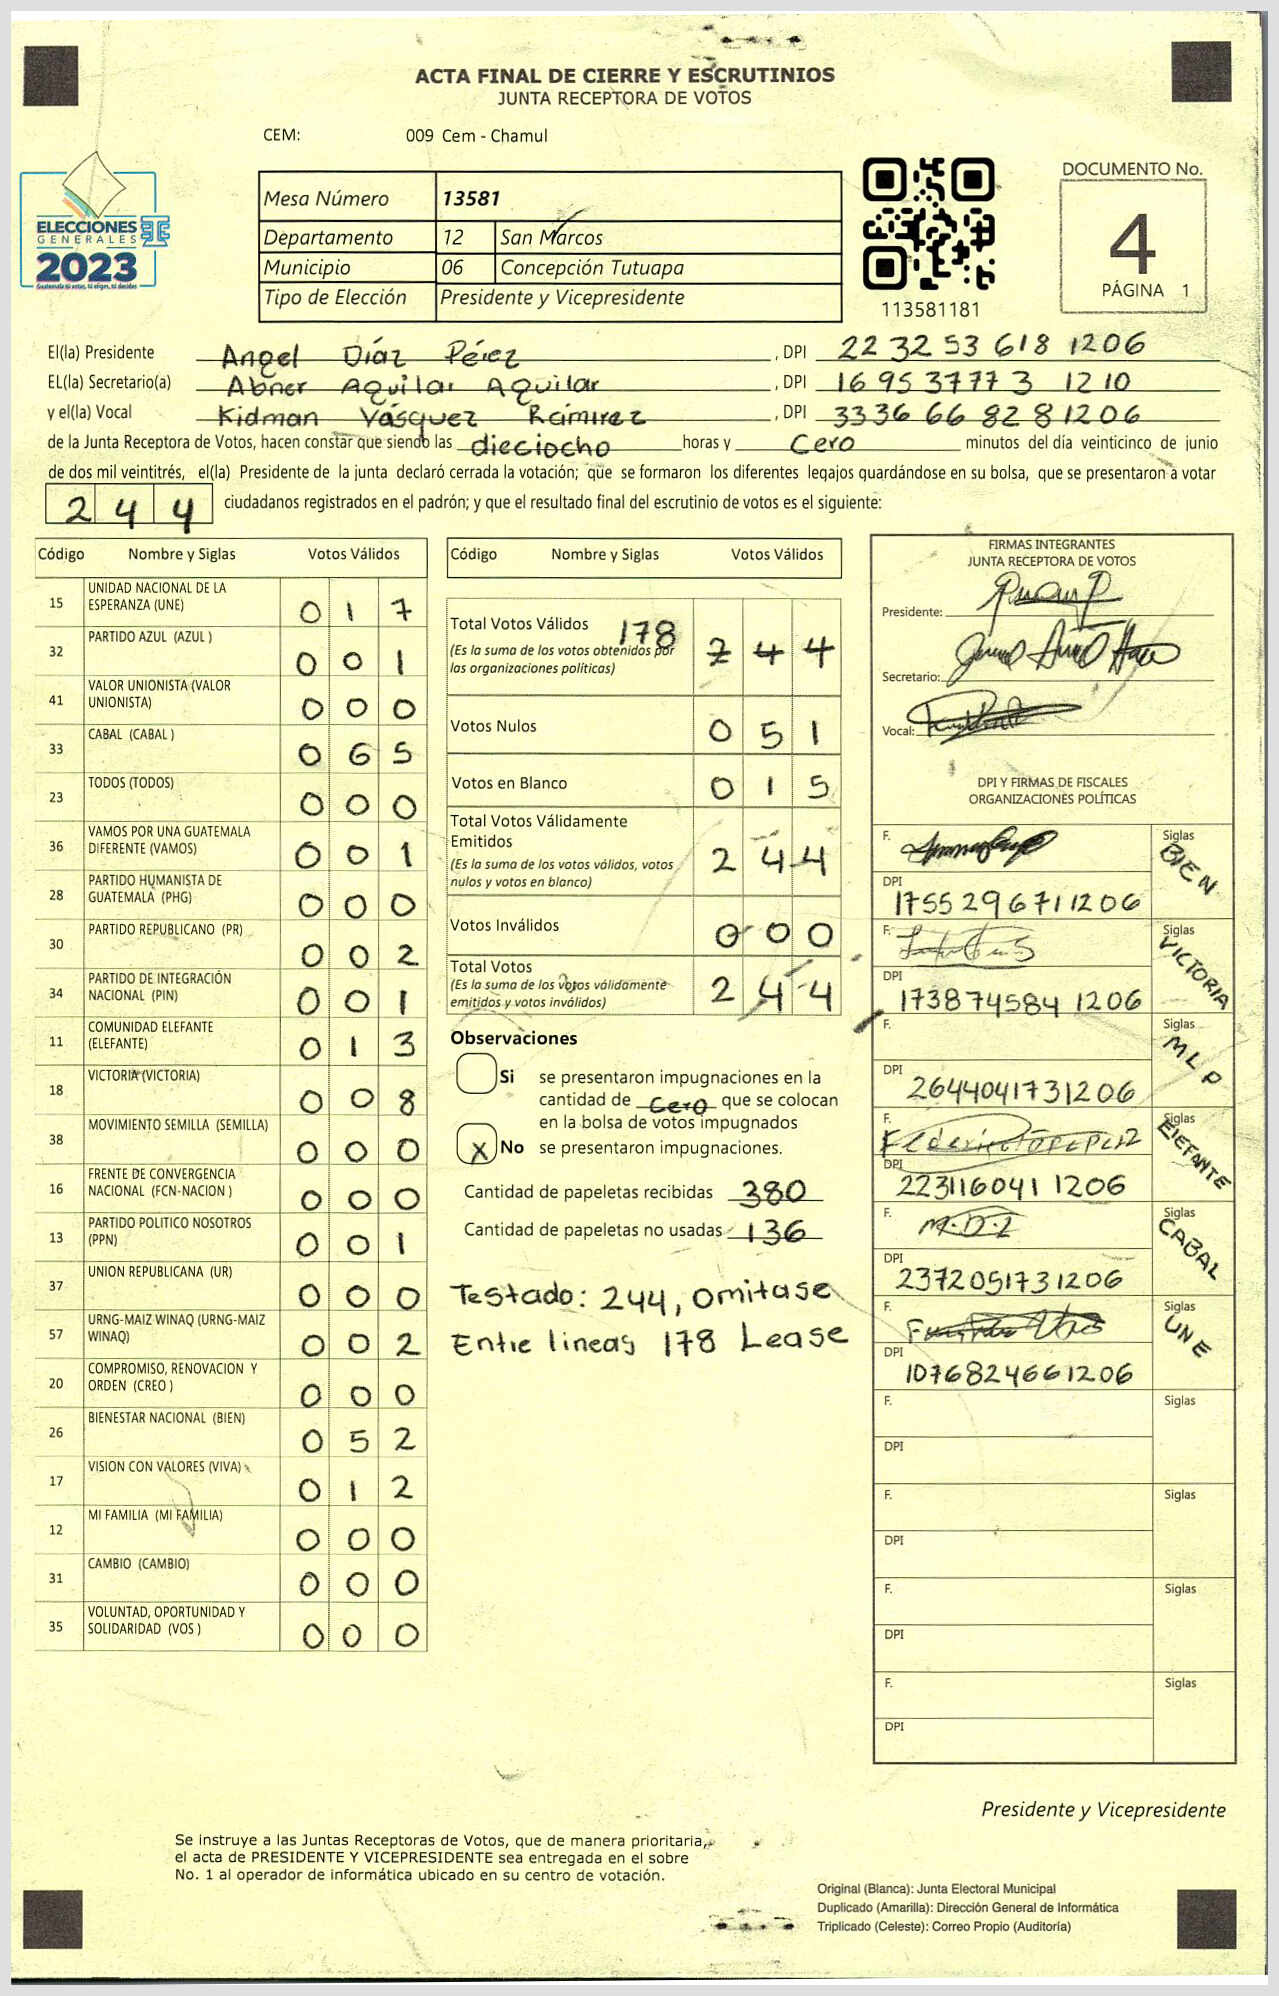 ACTA FINAL DE CIERRE Y ESCRUTINIOS
JUNTA RECEPTORA DE VOTOS
CEM: 009 Cem - Chamul
ELECCIONES
GENERALES
2023
Guatemala tú votas, tú eliges, tú decides
Mesa Número 13581
Departamento 12 San Marcos
Municipio 06 Concepción Tutuapa
Tipo de Elección Presidente y Vicepresidente
113581181
DOCUMENTO No.
4
PÁGINA 1
El(la) Presidente Angel Díaz Pérez , DPI 22 32 53 618 1206
EL(la) Secretario(a) Abner Aguilar Aguilar , DPI 16 95 37773 1210
y el(la) Vocal Kidman Vásquez Ramirez , DPI 3336 66 82 8 1206
de la Junta Receptora de Votos, hacen constar que siendo las dieciocho horas y Cero minutos del día veinticinco de junio
de dos mil veintitrés, el(la) Presidente de la junta declaró cerrada la votación; que se formaron los diferentes legajos guardándose en su bolsa, que se presentaron a votar
244 ciudadanos registrados en el padrón; y que el resultado final del escrutinio de votos es el siguiente:
Código Nombre y Siglas Votos Válidos
15 UNIDAD NACIONAL DE LA ESPERANZA (UNE) 0 1 7
32 PARTIDO AZUL (AZUL ) 0 0 1
41 VALOR UNIONISTA (VALOR UNIONISTA) 0 0 0
33 CABAL (CABAL ) 0 6 5
23 TODOS (TODOS) 0 0 0
36 VAMOS POR UNA GUATEMALA DIFERENTE (VAMOS) 0 0 1
28 PARTIDO HUMANISTA DE GUATEMALA (PHG) 0 0 0
30 PARTIDO REPUBLICANO (PR) 0 0 2
34 PARTIDO DE INTEGRACIÓN NACIONAL (PIN) 0 0 1
11 COMUNIDAD ELEFANTE (ELEFANTE) 0 1 3
18 VICTORIA (VICTORIA) 0 0 8
38 MOVIMIENTO SEMILLA (SEMILLA) 0 0 0
16 FRENTE DE CONVERGENCIA NACIONAL (FCN-NACION ) 0 0 0
13 PARTIDO POLITICO NOSOTROS (PPN) 0 0 1
37 UNION REPUBLICANA (UR) 0 0 0
57 URNG-MAIZ WINAQ (URNG-MAIZ WINAQ) 0 0 2
20 COMPROMISO, RENOVACION Y ORDEN (CREO ) 0 0 0
26 BIENESTAR NACIONAL (BIEN) 0 5 2
17 VISION CON VALORES (VIVA) 0 1 2
12 MI FAMILIA (MI FAMILIA) 0 0 0
31 CAMBIO (CAMBIO) 0 0 0
35 VOLUNTAD, OPORTUNIDAD Y SOLIDARIDAD (VOS ) 0 0 0
Código Nombre y Siglas Votos Válidos
Total Votos Válidos 178 2 4 4
(Es la suma de los votos obtenidos por
las organizaciones políticas)
Votos Nulos 0 5 1
Votos en Blanco 0 1 5
Total Votos Válidamente
Emitidos 2 4 4
(Es la suma de los votos válidos, votos
nulos y votos en blanco)
Votos Inválidos 0 0 0
Total Votos
(Es la suma de los votos válidamente 2 4 4
emitidos y votos inválidos)
Observaciones
Si se presentaron impugnaciones en la
cantidad de Cero que se colocan
en la bolsa de votos impugnados
X No se presentaron impugnaciones.
Cantidad de papeletas recibidas 380
Cantidad de papeletas no usadas 136
Testado: 244, omitase
Entre lineas 178 Lease
FIRMAS INTEGRANTES
JUNTA RECEPTORA DE VOTOS
Presidente:
Secretario:
Vocal:
DPI Y FIRMAS DE FISCALES
ORGANIZACIONES POLÍTICAS
F. Siglas BIEN
DPI 1755 29671 1206
F. Siglas VICTORIA
DPI 173874584 1206
F. Siglas MLP
DPI 2644041731206
F. Siglas ElEFANTE
DPI 223116041 1206
F. M.D.L Siglas CABAL
DPI 2372051731206
F. Siglas UNE
DPI 1076824661206
F. Siglas
DPI
F. Siglas
DPI
F. Siglas
DPI
F. Siglas
DPI
Presidente y Vicepresidente
Se instruye a las Juntas Receptoras de Votos, que de manera prioritaria,
el acta de PRESIDENTE Y VICEPRESIDENTE sea entregada en el sobre
No. 1 al operador de informática ubicado en su centro de votación.
Original (Blanca): Junta Electoral Municipal
Duplicado (Amarilla): Dirección General de Informática
Triplicado (Celeste): Correo Propio (Auditoría)